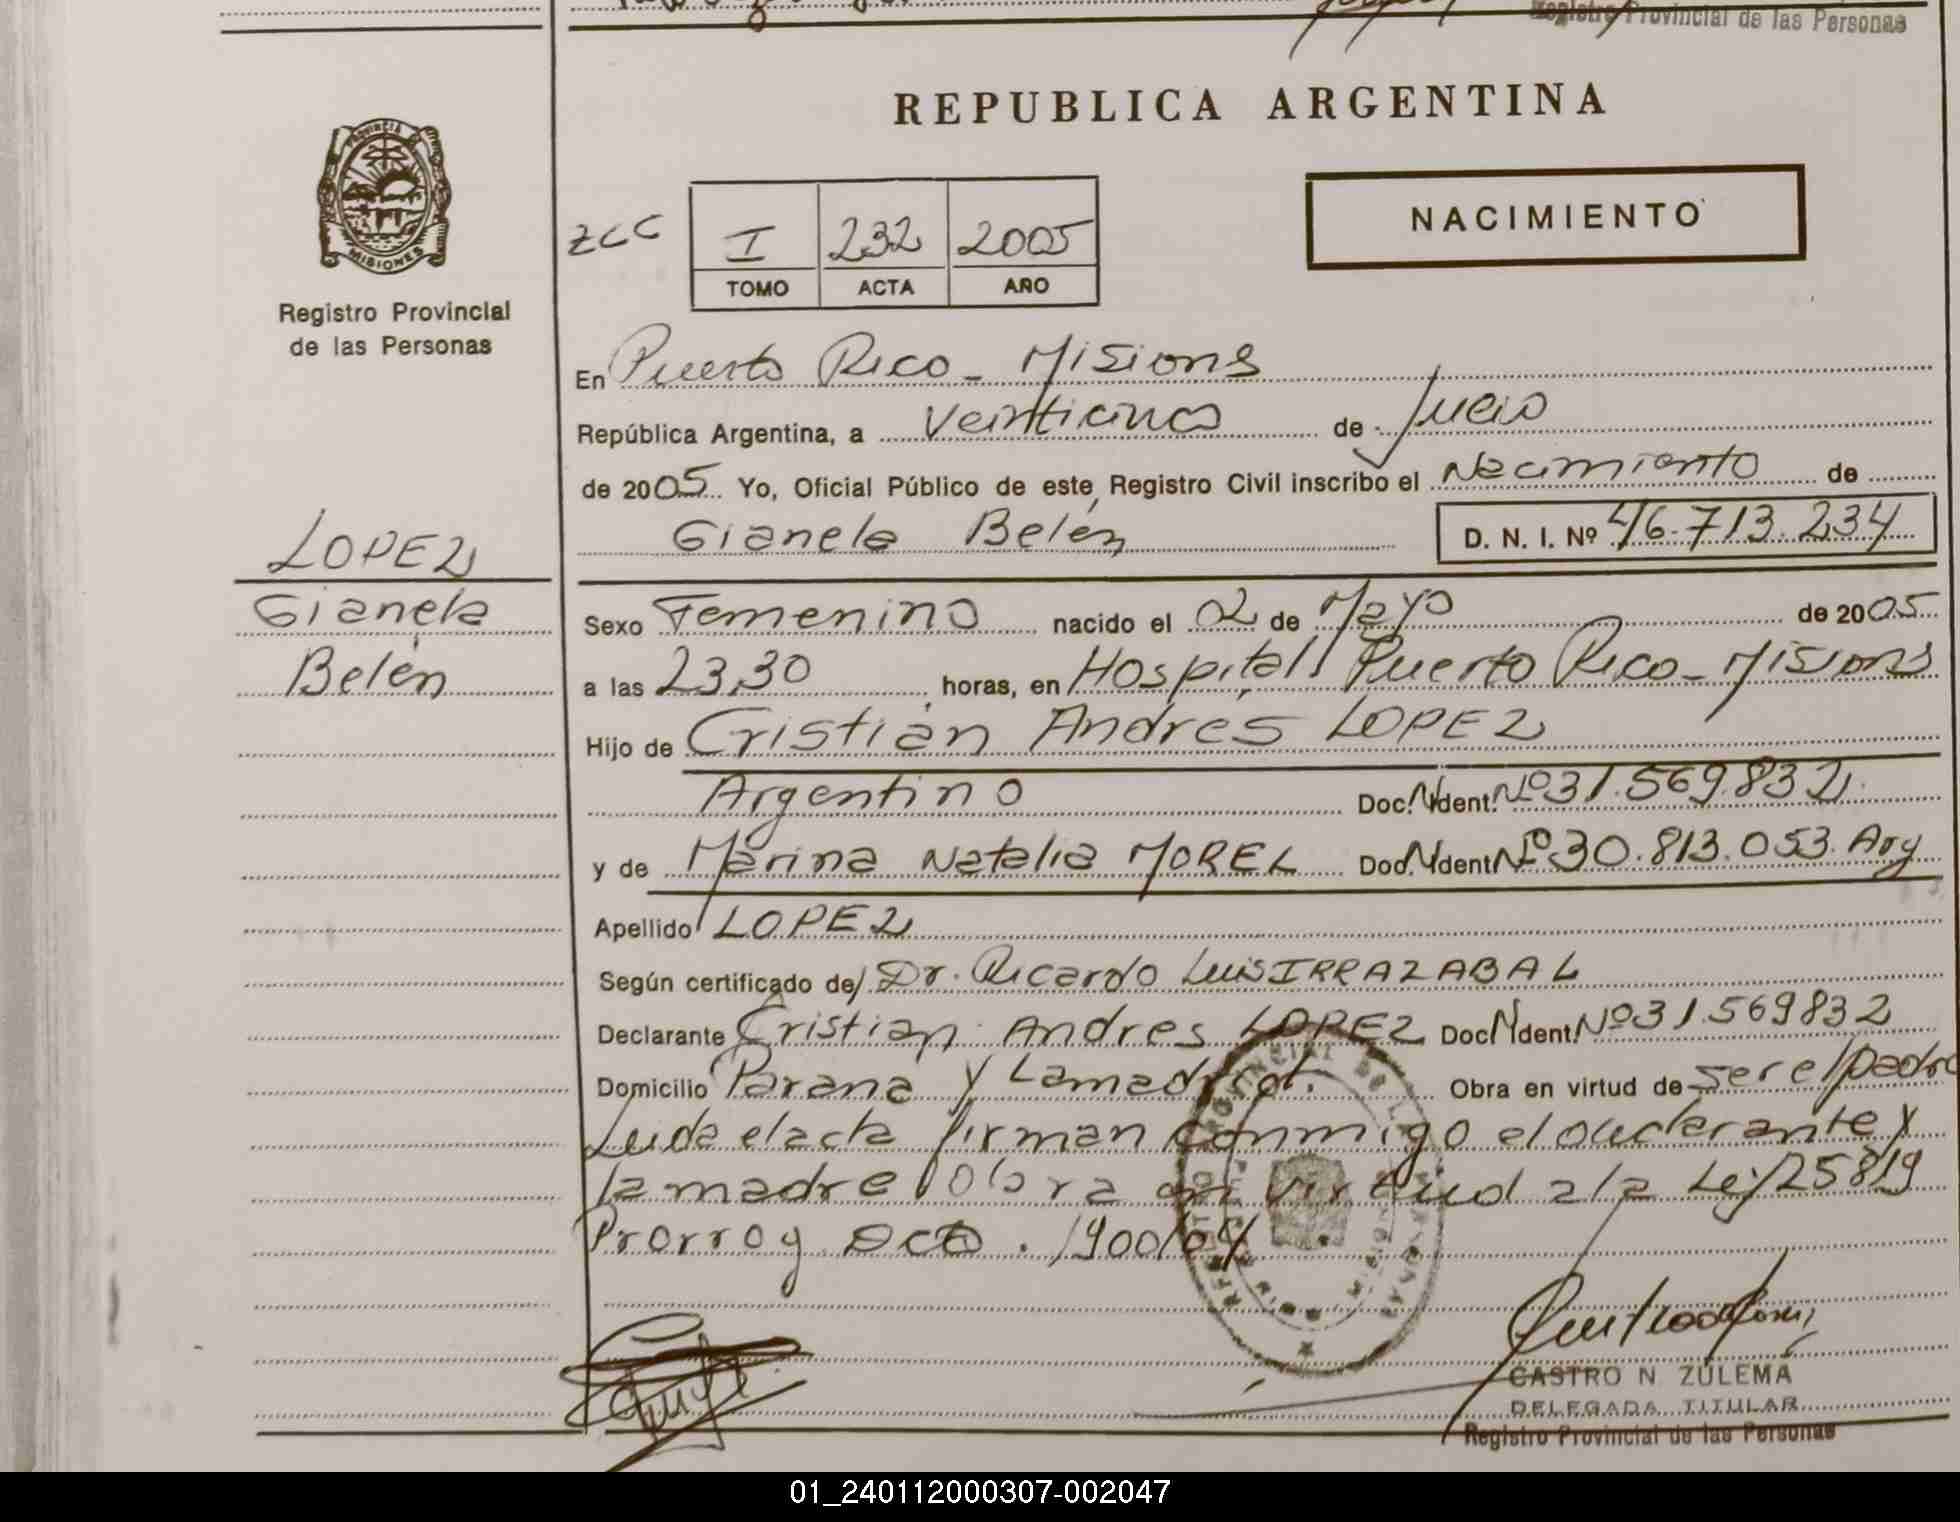 Registro Provincial de las Personas
PROVINCIA
MISIONES
Registro Provincial
de las Personas
REPUBLICA ARGENTINA
ZCC
I 232 2005
TOMO ACTA AÑO
NACIMIENTO
En Puerto Rico - Misions
República Argentina, a Veinticinco de Julio
de 2005 Yo, Oficial Público de este Registro Civil inscribo el Nacimiento de
Gianela Belén D. N. I. Nº 46.713.234
LOPEZ
Gianela
Belén
Sexo Femenino nacido el 02 de Mayo de 2005
a las 23,30 horas, en Hospital Puerto Rico - Misions
Hijo de Cristian Andres LOPEZ
Argentino Doc. N Ident. Nº 31.569.832
y de Marina Natalia MOREL Doc. N Ident Nº 30.813.053. Arg
Apellido LOPEZ
Según certificado de Dr. Ricardo Luis IRRAZABAL
Declarante Cristian Andres LOPEZ Doc N Ident. Nº 31.569832
Domicilio Parana y Lamadrid. Obra en virtud de ser el padre
Leida el acta firman conmigo el declarante y
la madre Obra en virtud a la Ley 25819
Prorrog Dcto. 1900/04
CASTRO N. ZULEMA
DELEGADA TITULAR
Registro Provincial de las Personas
01_240112000307-002047